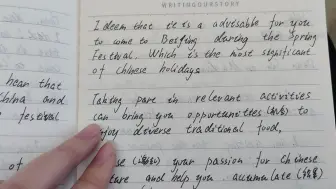 WRITINGOURSTORY
I deem that it is a advisable for you
to come to Beijing during the Spring
Festival. Which is the most significant
of chinese holidays
hear that
China and
festival
Taking part in relevant activities
can bring you opportunities to
enjoy diverse traditional food,
of
your passion for Chinese
ture and help you accumulate